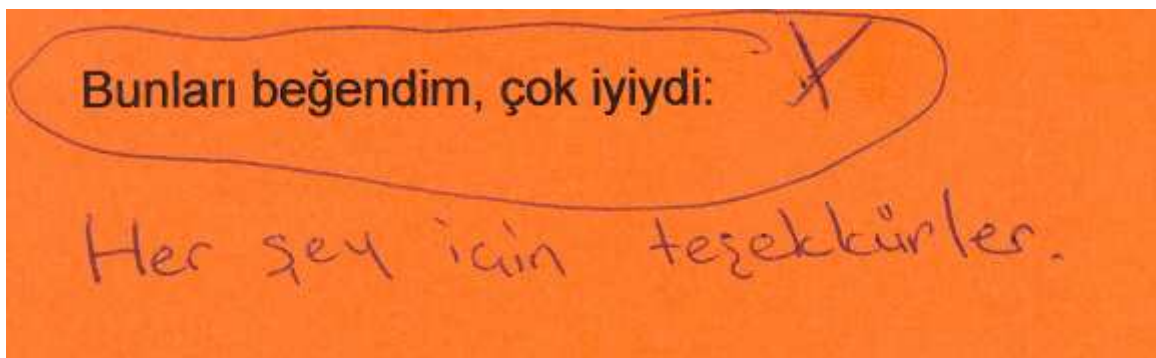 Bunları beğendim, çok iyiydi: X
Her şey için teşekkürler.